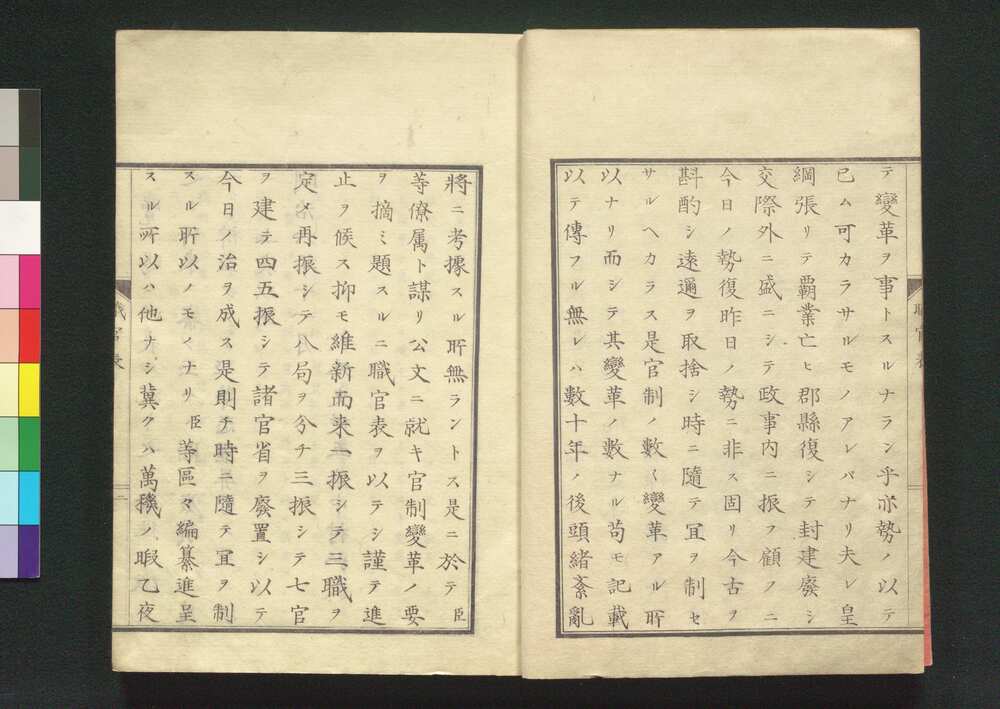 テ變革ヲ事トスルナラン乎亦勢ノ以テ
已ム可カラサルモノアレバナリ夫レ皇
綱張リテ覇業亡ヒ郡縣復シテ封建廢シ
交際外ニ盛ニシテ政事内ニ振フ顧フニ
今日ノ勢復昨日ノ勢ニ非ス固リ今古ヲ
斟酌シ遠邇ヲ取捨シ時ニ隨テ冝ヲ制セ
サルヘカラス是官制ノ數〱變革アル所
以ナリ而シテ其變革ノ數ナル苟モ記載
以テ傳フル無レハ數十年ノ後頭緒紊亂
將ニ考據スル所無ラントス是ニ於テ臣
等僚属ト謀リ公文ニ就キ官制變革ノ要
ヲ摘ミ題スルニ職官表ヲ以テシ謹テ進
止ヲ候ス抑モ維新而来一振シテ三職ヲ
定メ再振シテ八局ヲ分チ三振シテ七官
ヲ建テ四五振シテ諸官省ヲ廢置シ以テ
今日ノ治ヲ成ス是則チ時ニ隨テ冝ヲ制
スル所以ノモノナリ臣等區々編纂進呈
スル所以ハ他ナシ冀クハ萬機ノ暇乙夜
職官表
二